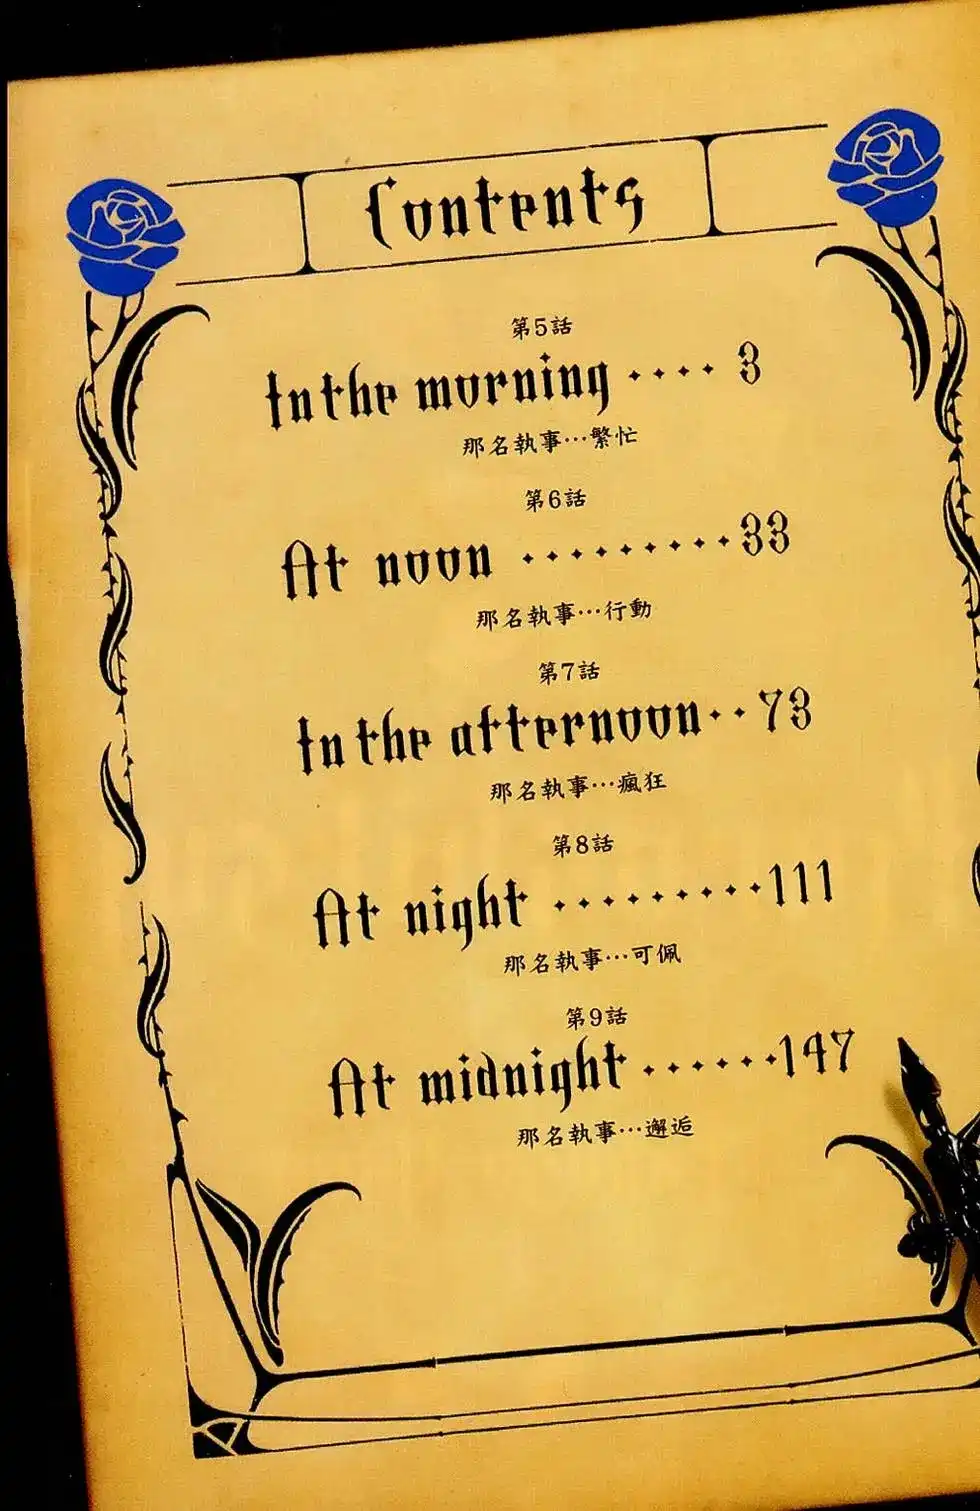 Contents
第5話
In the morning ···· 3
那名執事…繁忙
第6話
At noon ········· 33
那名執事…行動
第7話
In the afternoon ·· 73
那名執事…瘋狂
第8話
At night ········· 111
那名執事…可佩
第9話
At midnight ······ 147
那名執事…邂逅